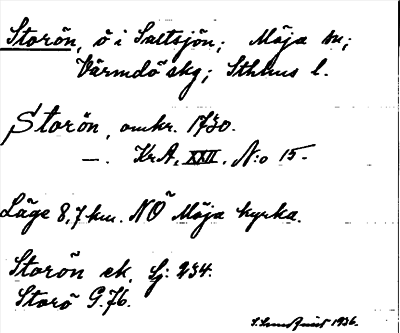 Storön, ö i Saltsjön; Möja sn;
Värmdö skg; Sthlms l.
Storön, omkr. 1730.
—. KrA, XXII, N:o 15.
Läge 8,7 km. NÖ Möja kyrka.
Storön ek. Sj: 234.
Storö G.76.
1936.